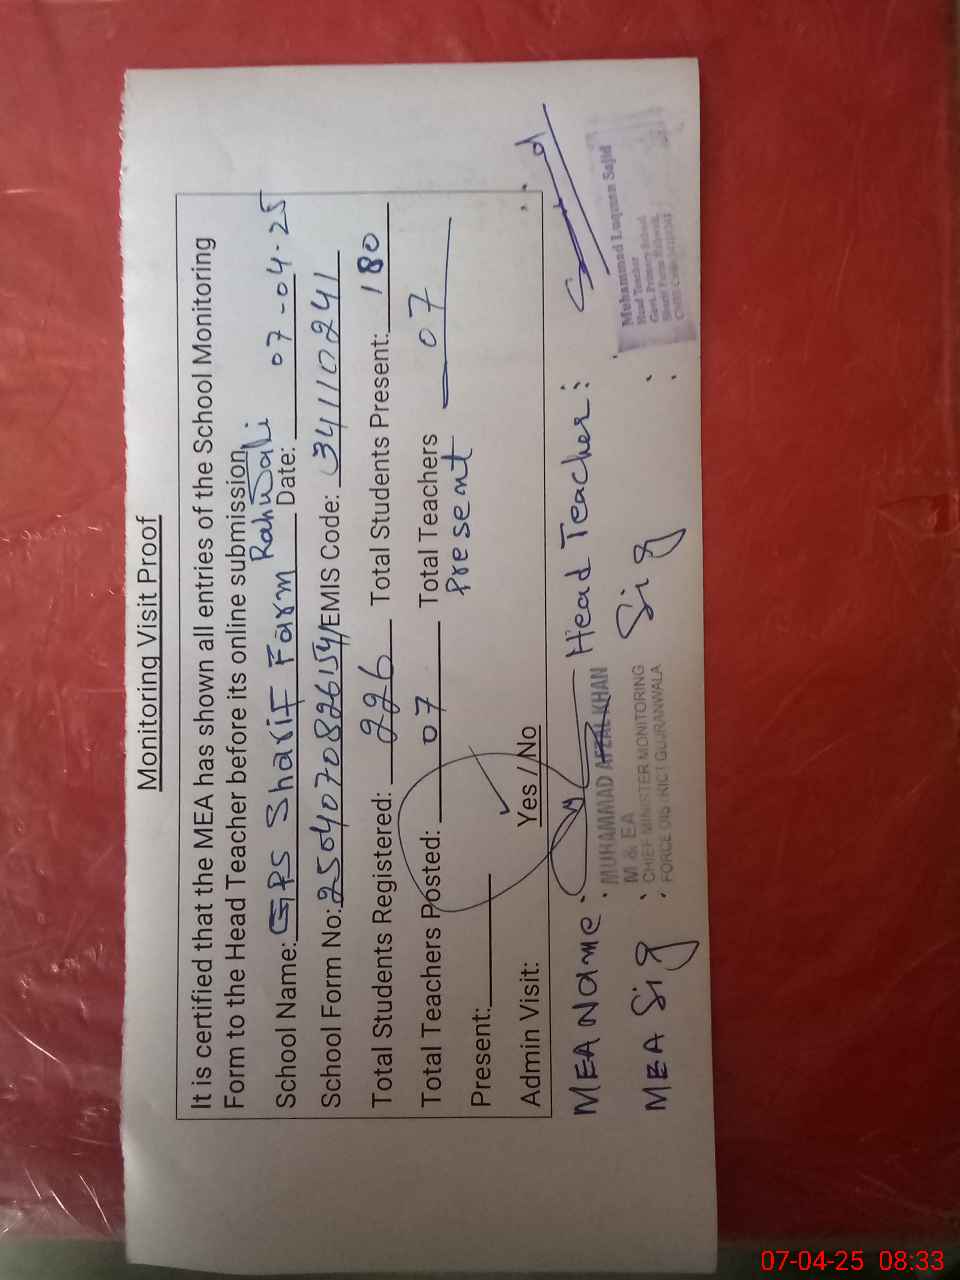 Monitoring Visit Proof
It is certified that the MEA has shown all entries of the School Monitoring
Form to the Head Teacher before its online submission
School Name: GPS Sharif Farm Rahwali Date: 07-04-25
School Form No: 2504070826154/EMIS Code: 34110241
Total Students Registered: 226 Total Students Present: 180
Total Teachers Posted: 07 Total Teachers Present 07
Present:
Admin Visit: Yes / No
MEA Name: Head Teacher:
MUHAMMAD AFZAL KHAN
M & EA
CHIEF MINISTER MONITORING
FORCE DISTRICT GUJRANWALA
MEA Sig : Sig :
Muhammad Luqman Sajid
Head Teacher
Govt. Primary School
Sharif Farm Rahwali
07-04-25 08:33